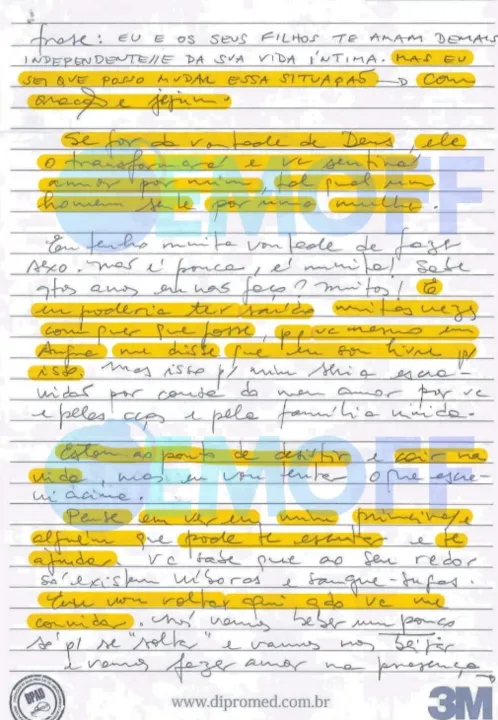 frase: EU E OS SEUS FILHOS TE AMAM DEMAIS
INDEPENDENTE//E DA SUA VIDA ÍNTIMA. MAS EU
SEI QUE POSSO MUDAR ESSA SITUAÇÃO → com
oração e jejum.
Se for da vontade de Deus, ele
o transformará e vc sentirá
amor por mim, tal qual um
homem sente por uma mulher.
Eu tenho muita vontade de fazer
sexo. não é pouca, é muita! Sabe
qtos anos eu não faço? muitos! E
eu poderia ter saído muitas vezes
com quer que fosse, pq vc mesmo em
Angra me disse que eu sou livre p/
isso. Mas isso p/ mim seria
por causa do meu amor por vc
e pelos e pela família unida.
Estou ao ponto de desistir e cair na
vida, mas eu vou tentar o que escre-
vi acima.
Pense em ver em mim primeira//e
alguém que pode te escutar e te
ajudar. Vc sabe que ao seu redor
só existem víboras e sangue-sugas.
Eu vou voltar aqui qdo vc me
convidar. Nós vamos beber um pouco
só p/ se "soltar" e vamos nos beijar
e vamos fazer amor na presença →
OEMOFF
OEMOFF
DPAD
www.dipromed.com.br
3M